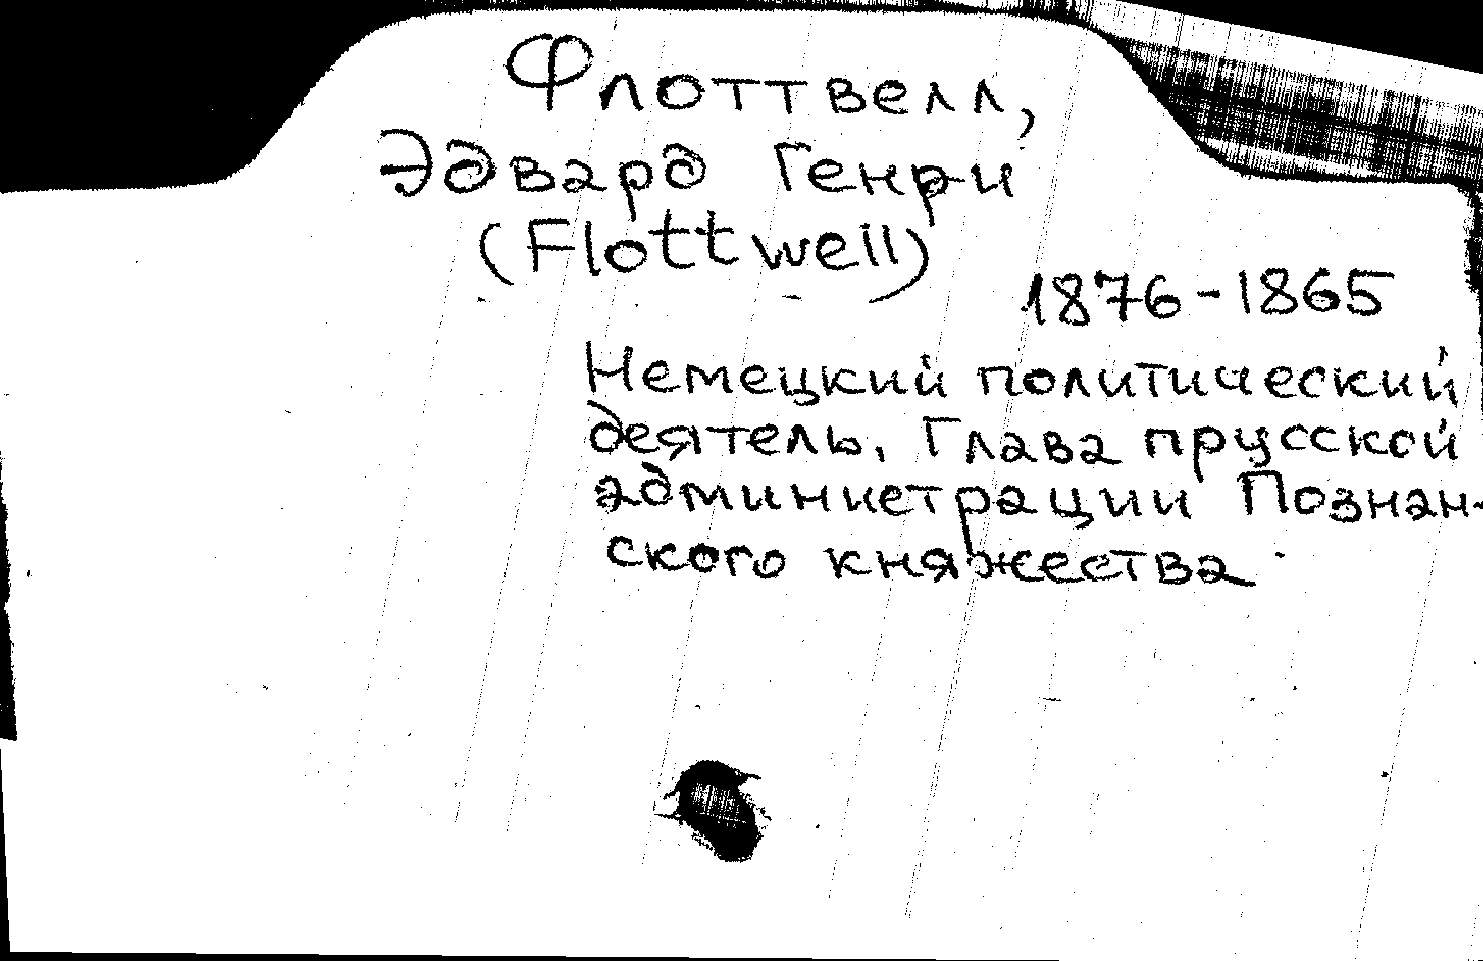 Флоттвелл,
Эдвард Генри
(Flottwell)
1876-1865
Немецкий политический
деятель. Глава прусской
администрации Познан-
ского княжества